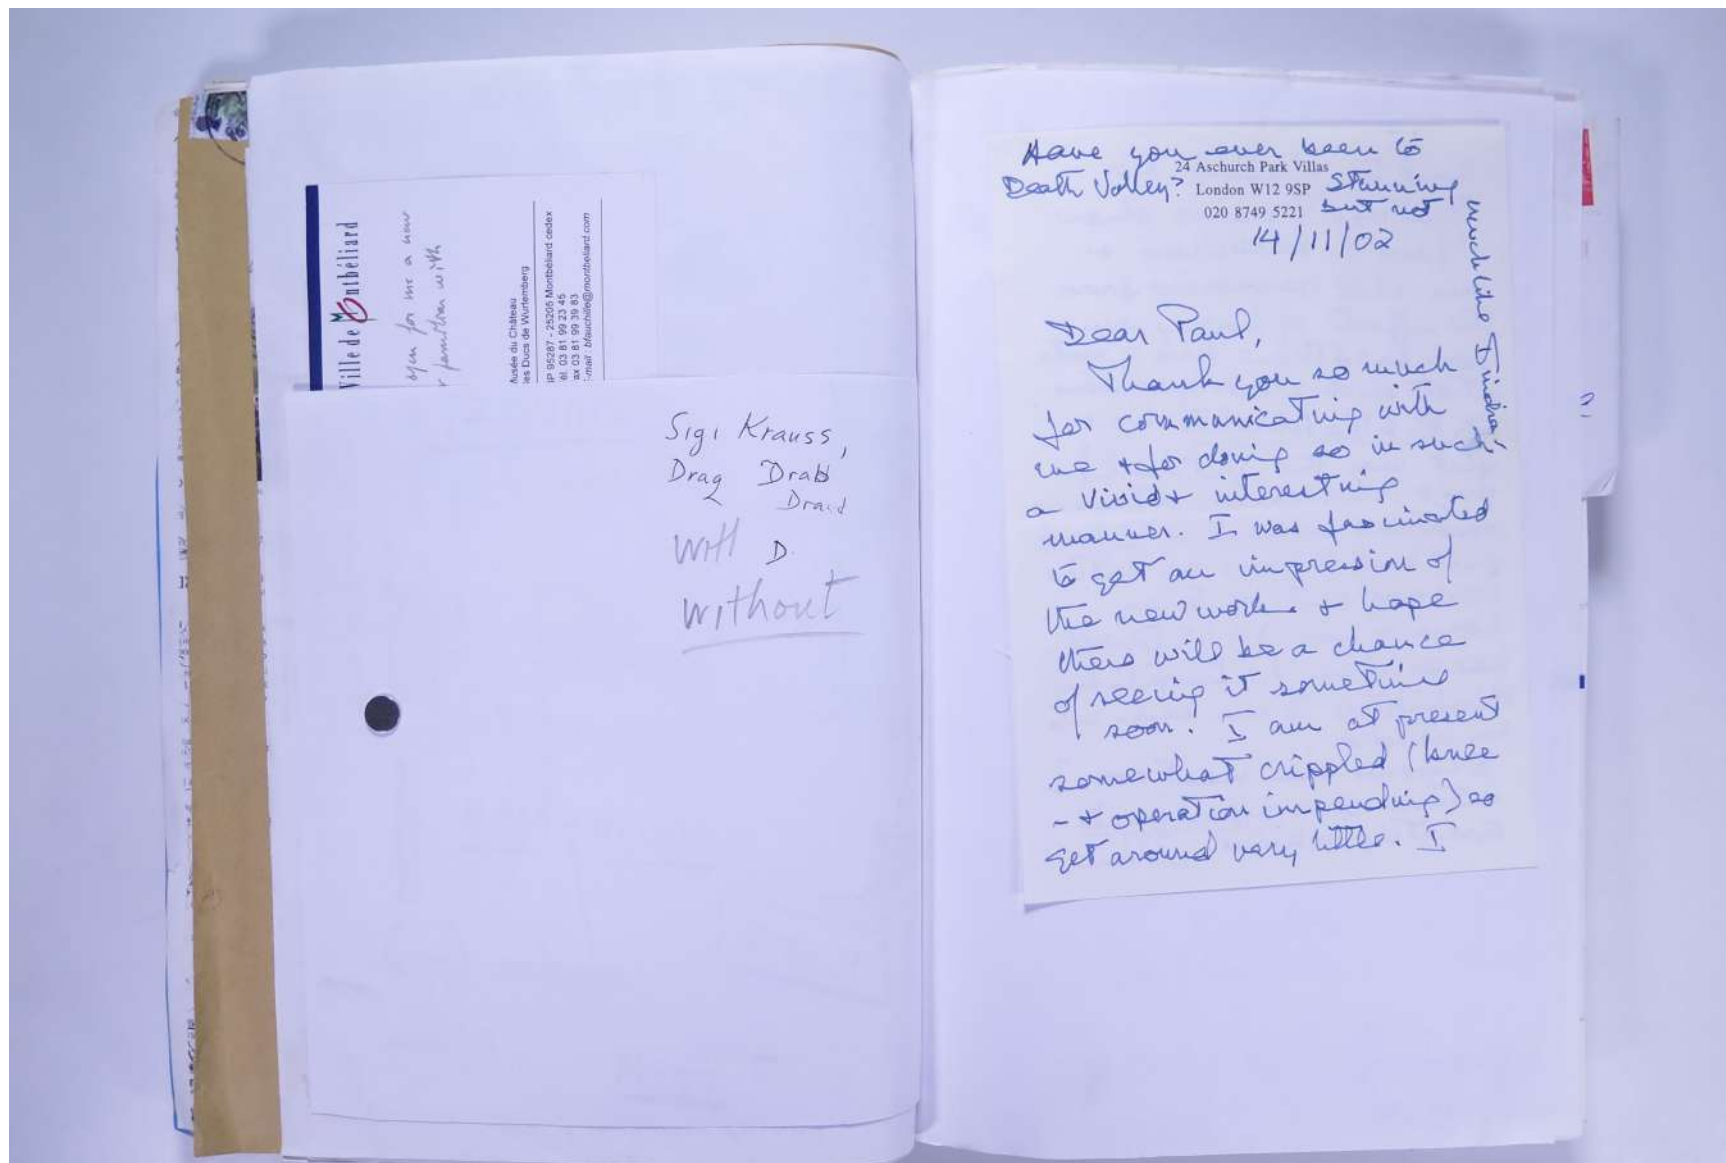 Ville de Montbéliard
for me a
with
Musée du Château
des Ducs de Wurtemberg
BP 95287 - 25205 Montbéliard cedex
Tél. 03 81 99 23 45
Fax 03 81 99 39 83
E-mail : bfauchille@montbeliard.com
Sigi Krauss,
Drag Drab
Draid
Will D
without
Have you ever been to
Death Valley? Stunning
but not
much like
24 Aschurch Park Villas
London W12 9SP
020 8749 5221
14/11/02
Dear Paul,
Thank you so much
for communicating with
me & for doing so in such
a vivid & interesting
manner. I was fascinated
to get an impression of
the new work & hope
there will be a chance
of seeing it sometime
soon! I am at present
somewhat crippled (knee
- & operation impending) so
get around very little. I